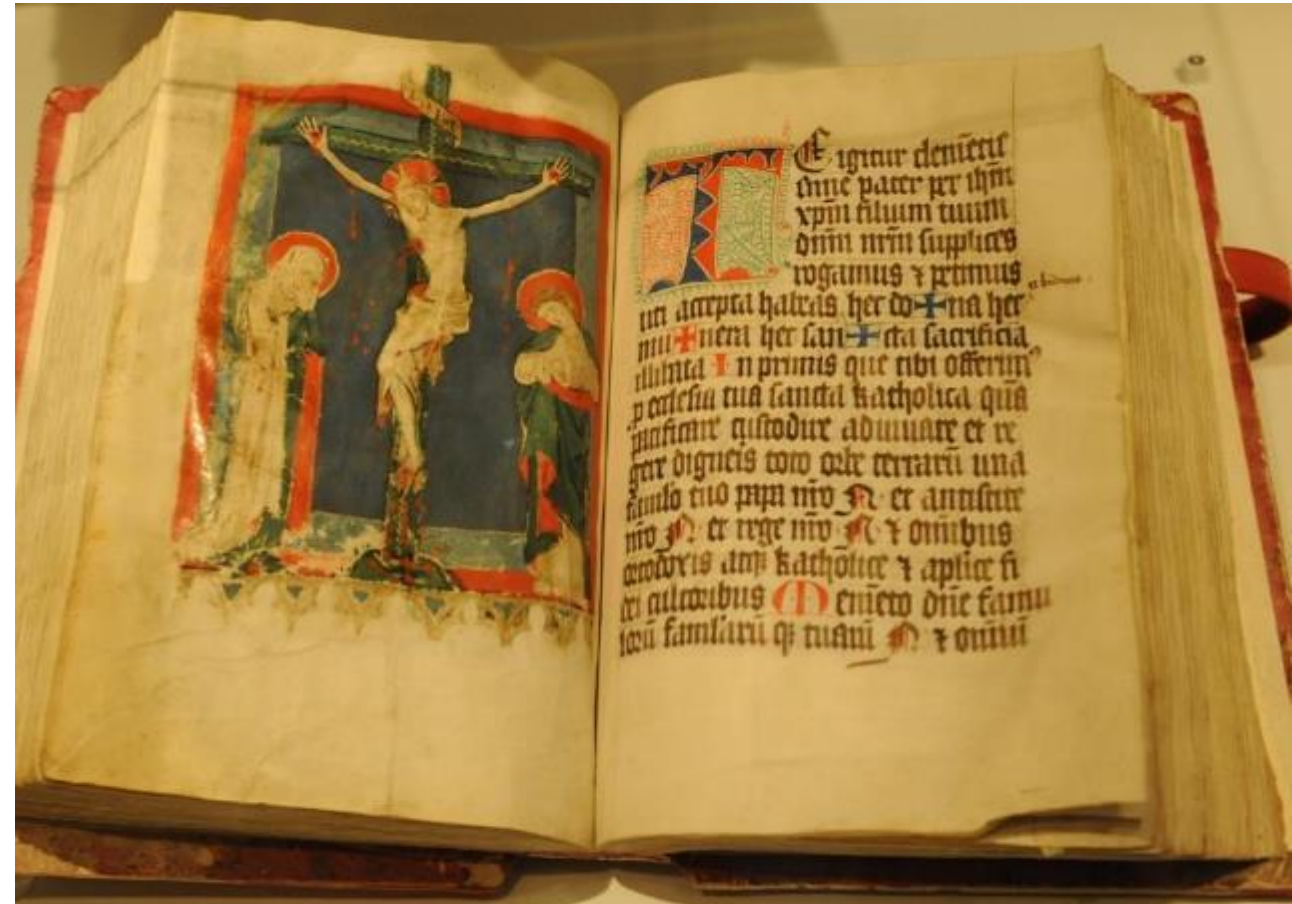 TE igitur clemētis
sime pater per ihm̄
xp̄m filium tuum
dn̄m nr̄m supplices
rogamus ⁊ petimus
uti accepta habeas hec do✚na hec
mu✚nera hec san✚cta sacrificia
illibata In primis que tibi offerim⁹
ꝓ ecclesia tua sancta katholica quā
pacificare custodire adiuuare et re
gere digneis toto orbe terrarū una
famlo tuo papa nr̄o N et antistite
nr̄o N et rege nr̄o N ⁊ omībus
ortodoxis atqꝫ katholice ⁊ ap̄lice fi
dei cultoribus Memēto dn̄e famu
lorū famlarū qꝫ tuarū N ⁊ omiū